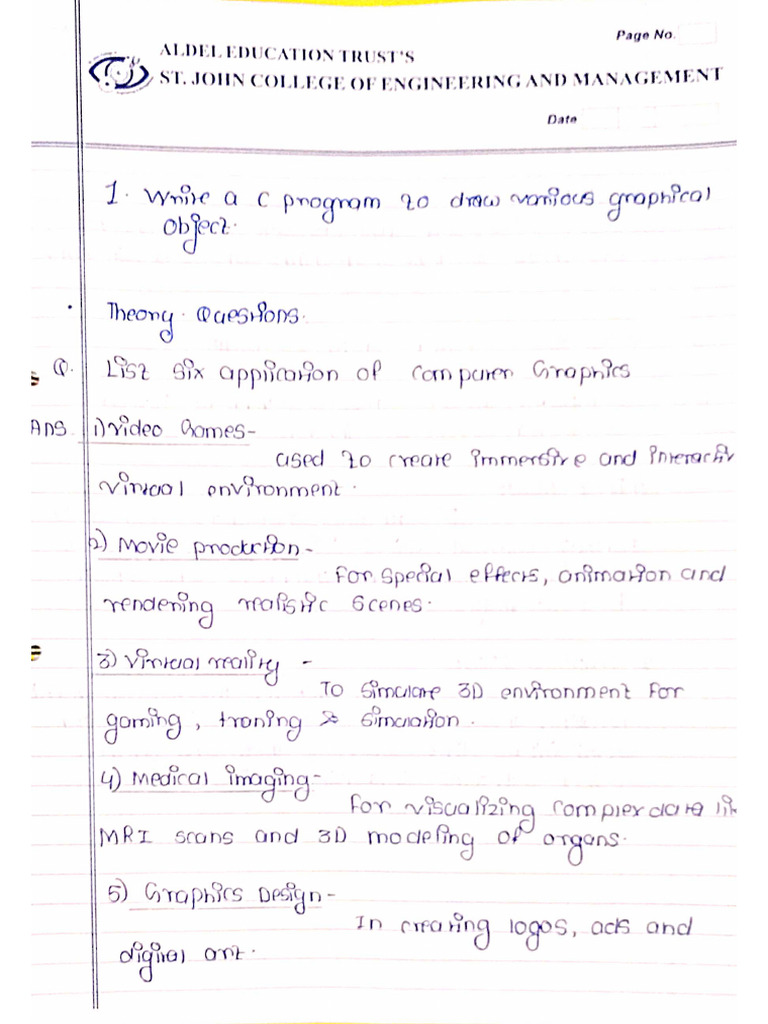 Page No.
ALDEL EDUCATION TRUST'S
ST. JOHN COLLEGE OF ENGINEERING AND MANAGEMENT
Date
1. Write a C program to draw various graphical
object.
Theory Questions.
Q. List six application of Computer Graphics
Ans 1) Video Games-
used to create immersive and interactiv
virtual environment.
2) Movie production-
For special effects, animation and
rendering realistic scenes.
3) Virtual reality -
To simulate 3D environment for
gaming, traning & simulation.
4) Medical imaging-
For visualizing complex data lik
MRI scans and 3D modeling of organs.
5) Graphics Design-
In creating logos, ads and
digital art.